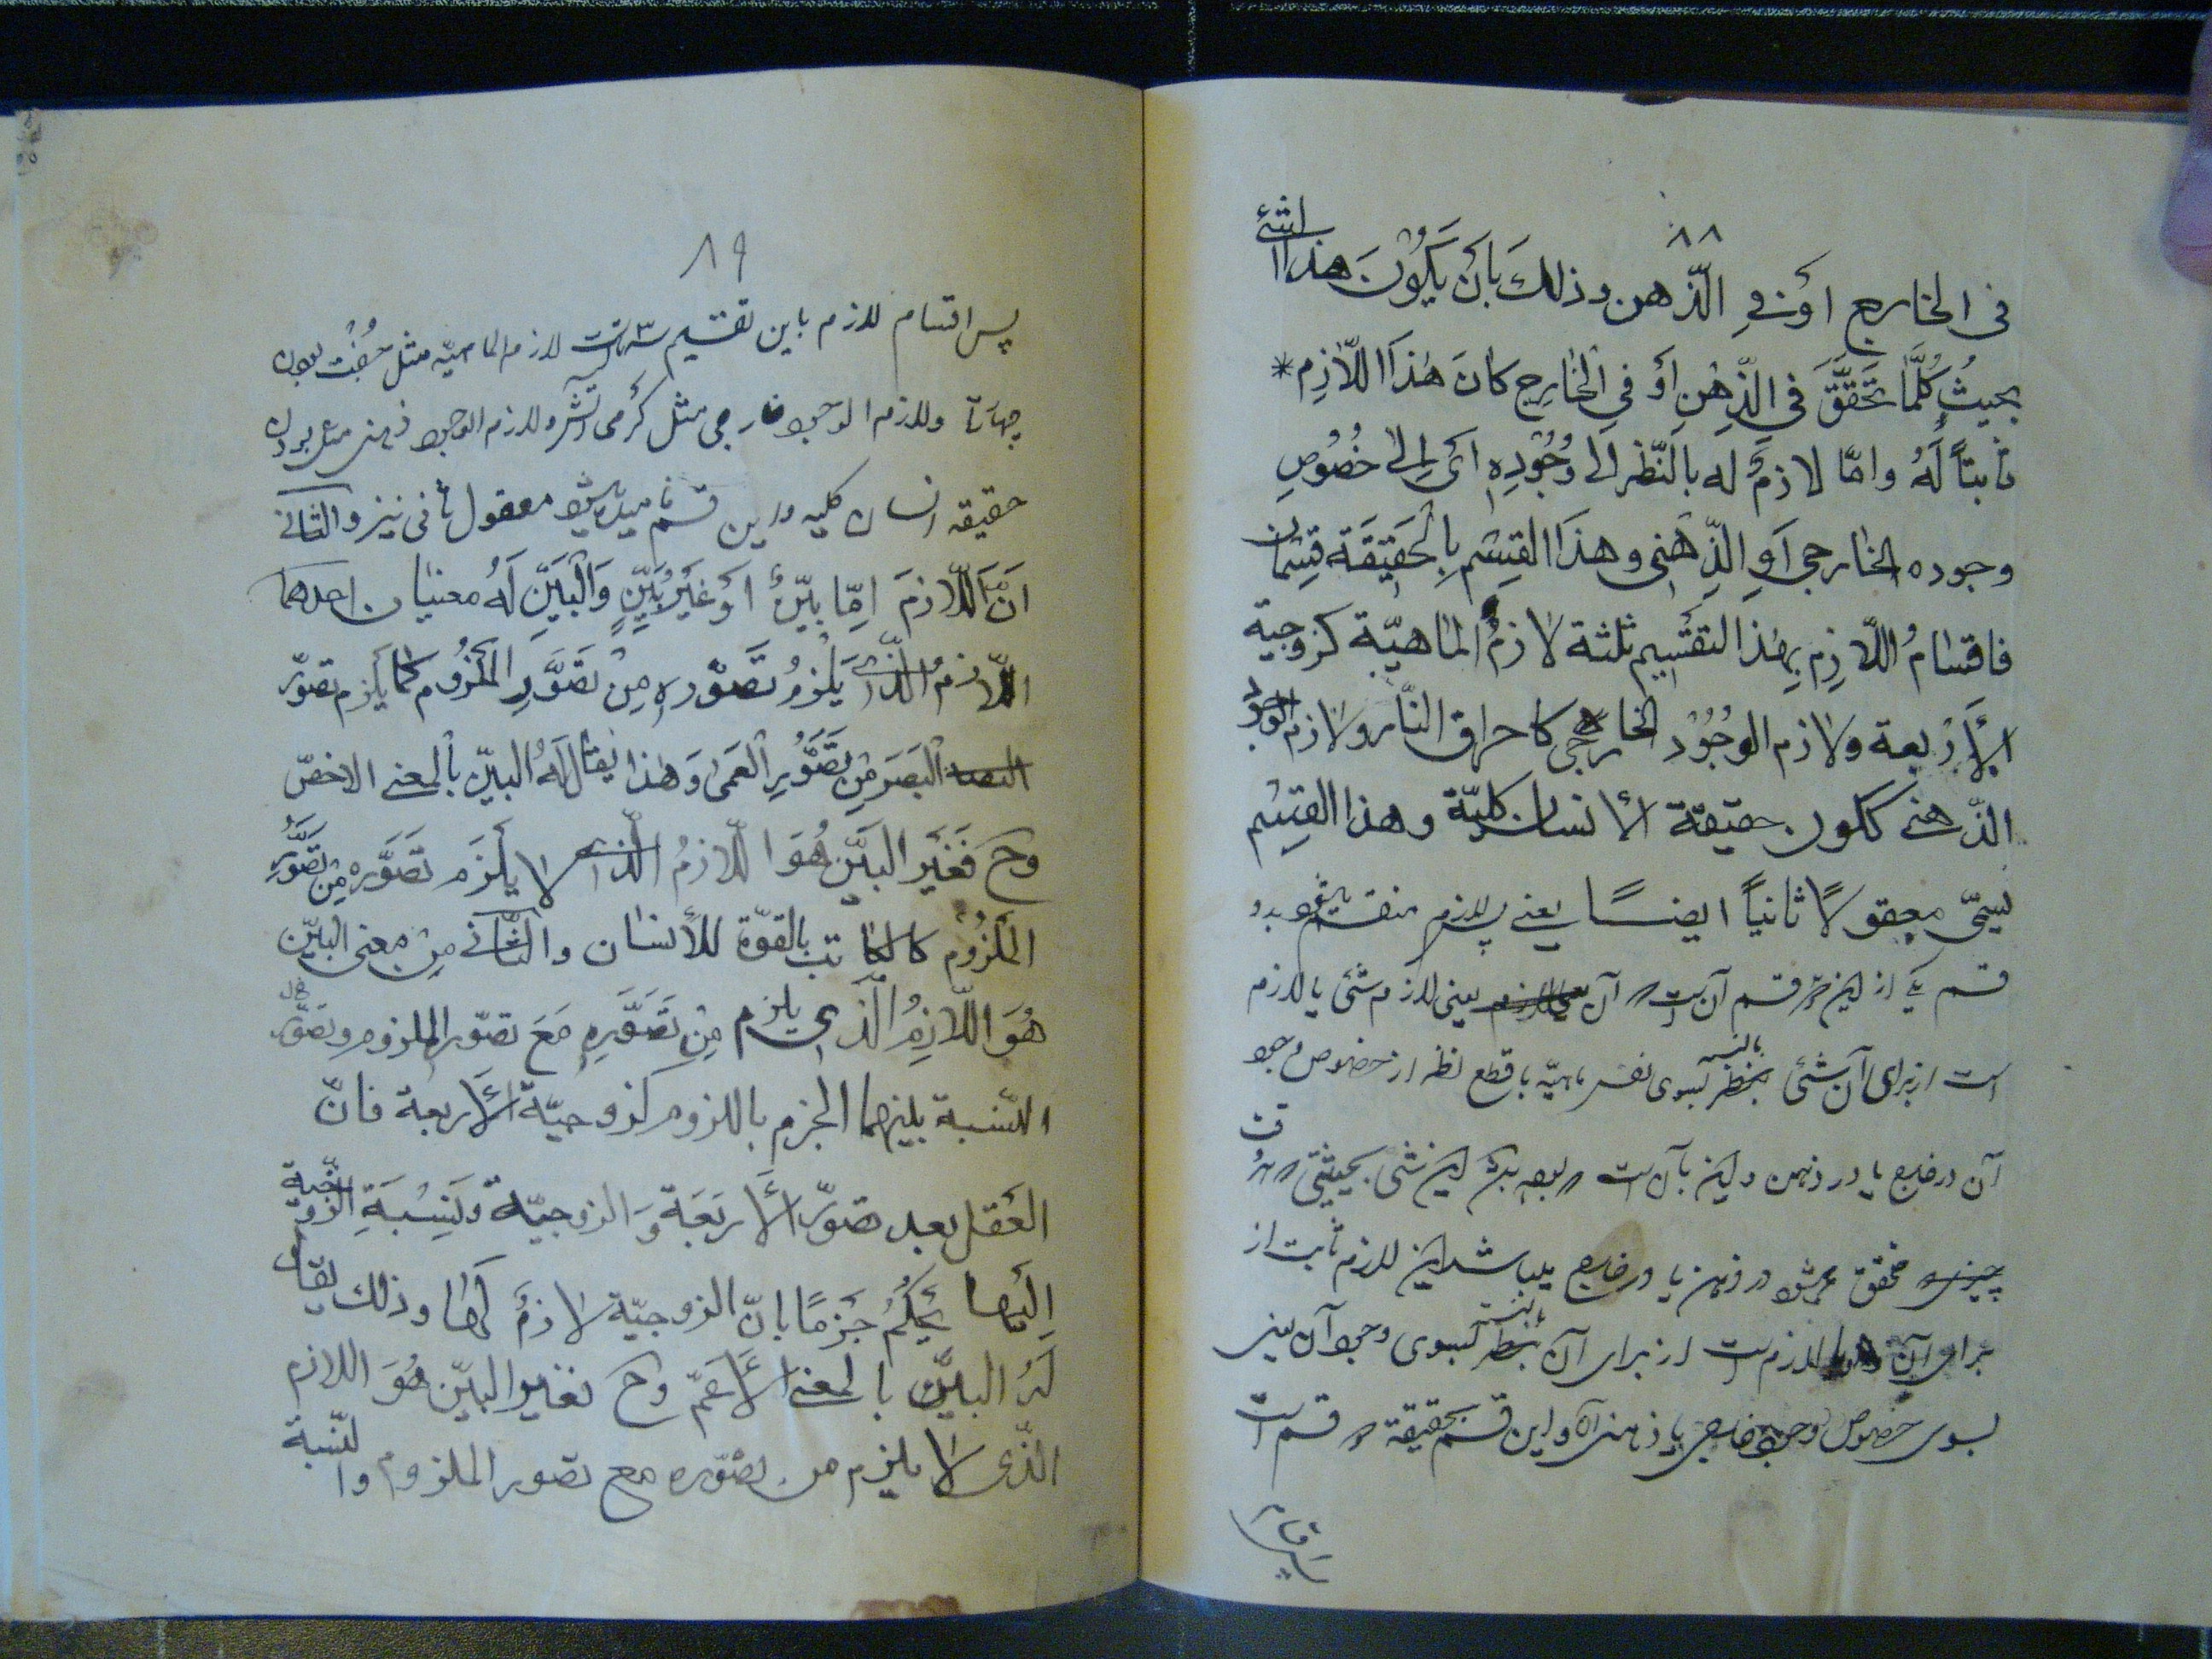 ٨٨
فى الخارج اَوْ فِى الذّهن وذلكَ بأن يَكُونَ هذا الشئ
بحيثُ كُلَّمَا تَحَقَّقَ فى الذِّهْنِ اَوْ فِى الخارج كانَ هٰذا اللّازم *
ثابتاً لَهُ وامّا لازمٌ له بالنّظر الى وُجُودِهِ اى الى خصُوصِ
وجوده الخارجى اَوِ الذِّهنى وهذا القِسْم بِالحَقِيقَة قِسمان
فاقسامُ اللّازِم بِهٰذا التقسيم ثلثة لازمُ الماهيّة كزوجية
الأربعة ولازم الوجُوُد الخارجى كاحراق النّار ولازم الوجود
الذّهنى ككون حقيقة الأنسان كليّة وهذا القِسْم
يسمّى معقولًا ثانياً ايضًا يعنى پس لازم منقسم ميشود بدو
قسم يكى از اين دو قسم آن است كه آن يعنى لازم شئ يا لازم
است از براى آن شئى بالنسبه بسوى نفس ماهيّه با قطع نظر از خصوص وجود
آن در خارج يا در ذهن و اين بآن است كه بوده باشد اين شئ بحيثيتى كه هر وقت
محقق ميشود در ذهن يا در خارج ميباشد اين لازم ثابت از
براى آن لازم است از براى آن بالنسبة بسوى وجود آن يعنى
بسوى خصوص وجود خارجى يا ذهنى آن و اين قسم بحقيقة دو قسم است
پس اقسام
٨٩
پس اقسام لازم باين تقسيم سه است لازم الماهيّه مثل جُفْت بودن
چهارتا ولازم الوجود خارجى مثل گرمى آتش ولازم الوجود ذهنى مثل بودن
حقيقه انسان كليه واين قسم ناميده ميشود معقول ثانى نيز والثانى
اَنّ اللّازمَ امّا بيّنٌ اَوْ غَيْرُ بَيِّنٍ وَالْبَيِّن لَهُ معنيان احدهما
اللّازمُ الّذى يَلْزمُ تَصَوّره مِنْ تَصَوُّرِ المَلزُوم كما يلزم تصوّر
البَصَر مِن تَصَوُّرِ العَمىٰ وَهٰذا يقال لَهُ البيّن بالمعنى الاخصّ
وح فَغَير البَيّن هُوَ اللّازمُ الّذى لا يَلْزَم تَصَوَّره مِن تصَوُّرِ
المَلزُوُم كالكاتب بالقوّة للأنسان والثّانى مِن معنى البيّن
هُوَ اللّازِمُ الّذى يلزم مِن تَصَوَّرِه مَعَ تصوّر الملزوم وتصَوّر
النّسبة بينهما الجزم باللزوم كزوجيّة الأربعة فانّ
العَقل بعد تصوّر الأربَعَة وَالزوجيّة ونِسْبَةِ الزّوجيّة
اِلَيْها يَحكُمُ جَزمًا بانّ الزوجيّة لازمٌ لَها وذلك يقال
لَهُ البيّن بالمعنى الأعمّ وح فغير البيّن هُوَ اللازم
الّذى لا يلزم من تصوّره مع تصور الملزوم والنّسبة